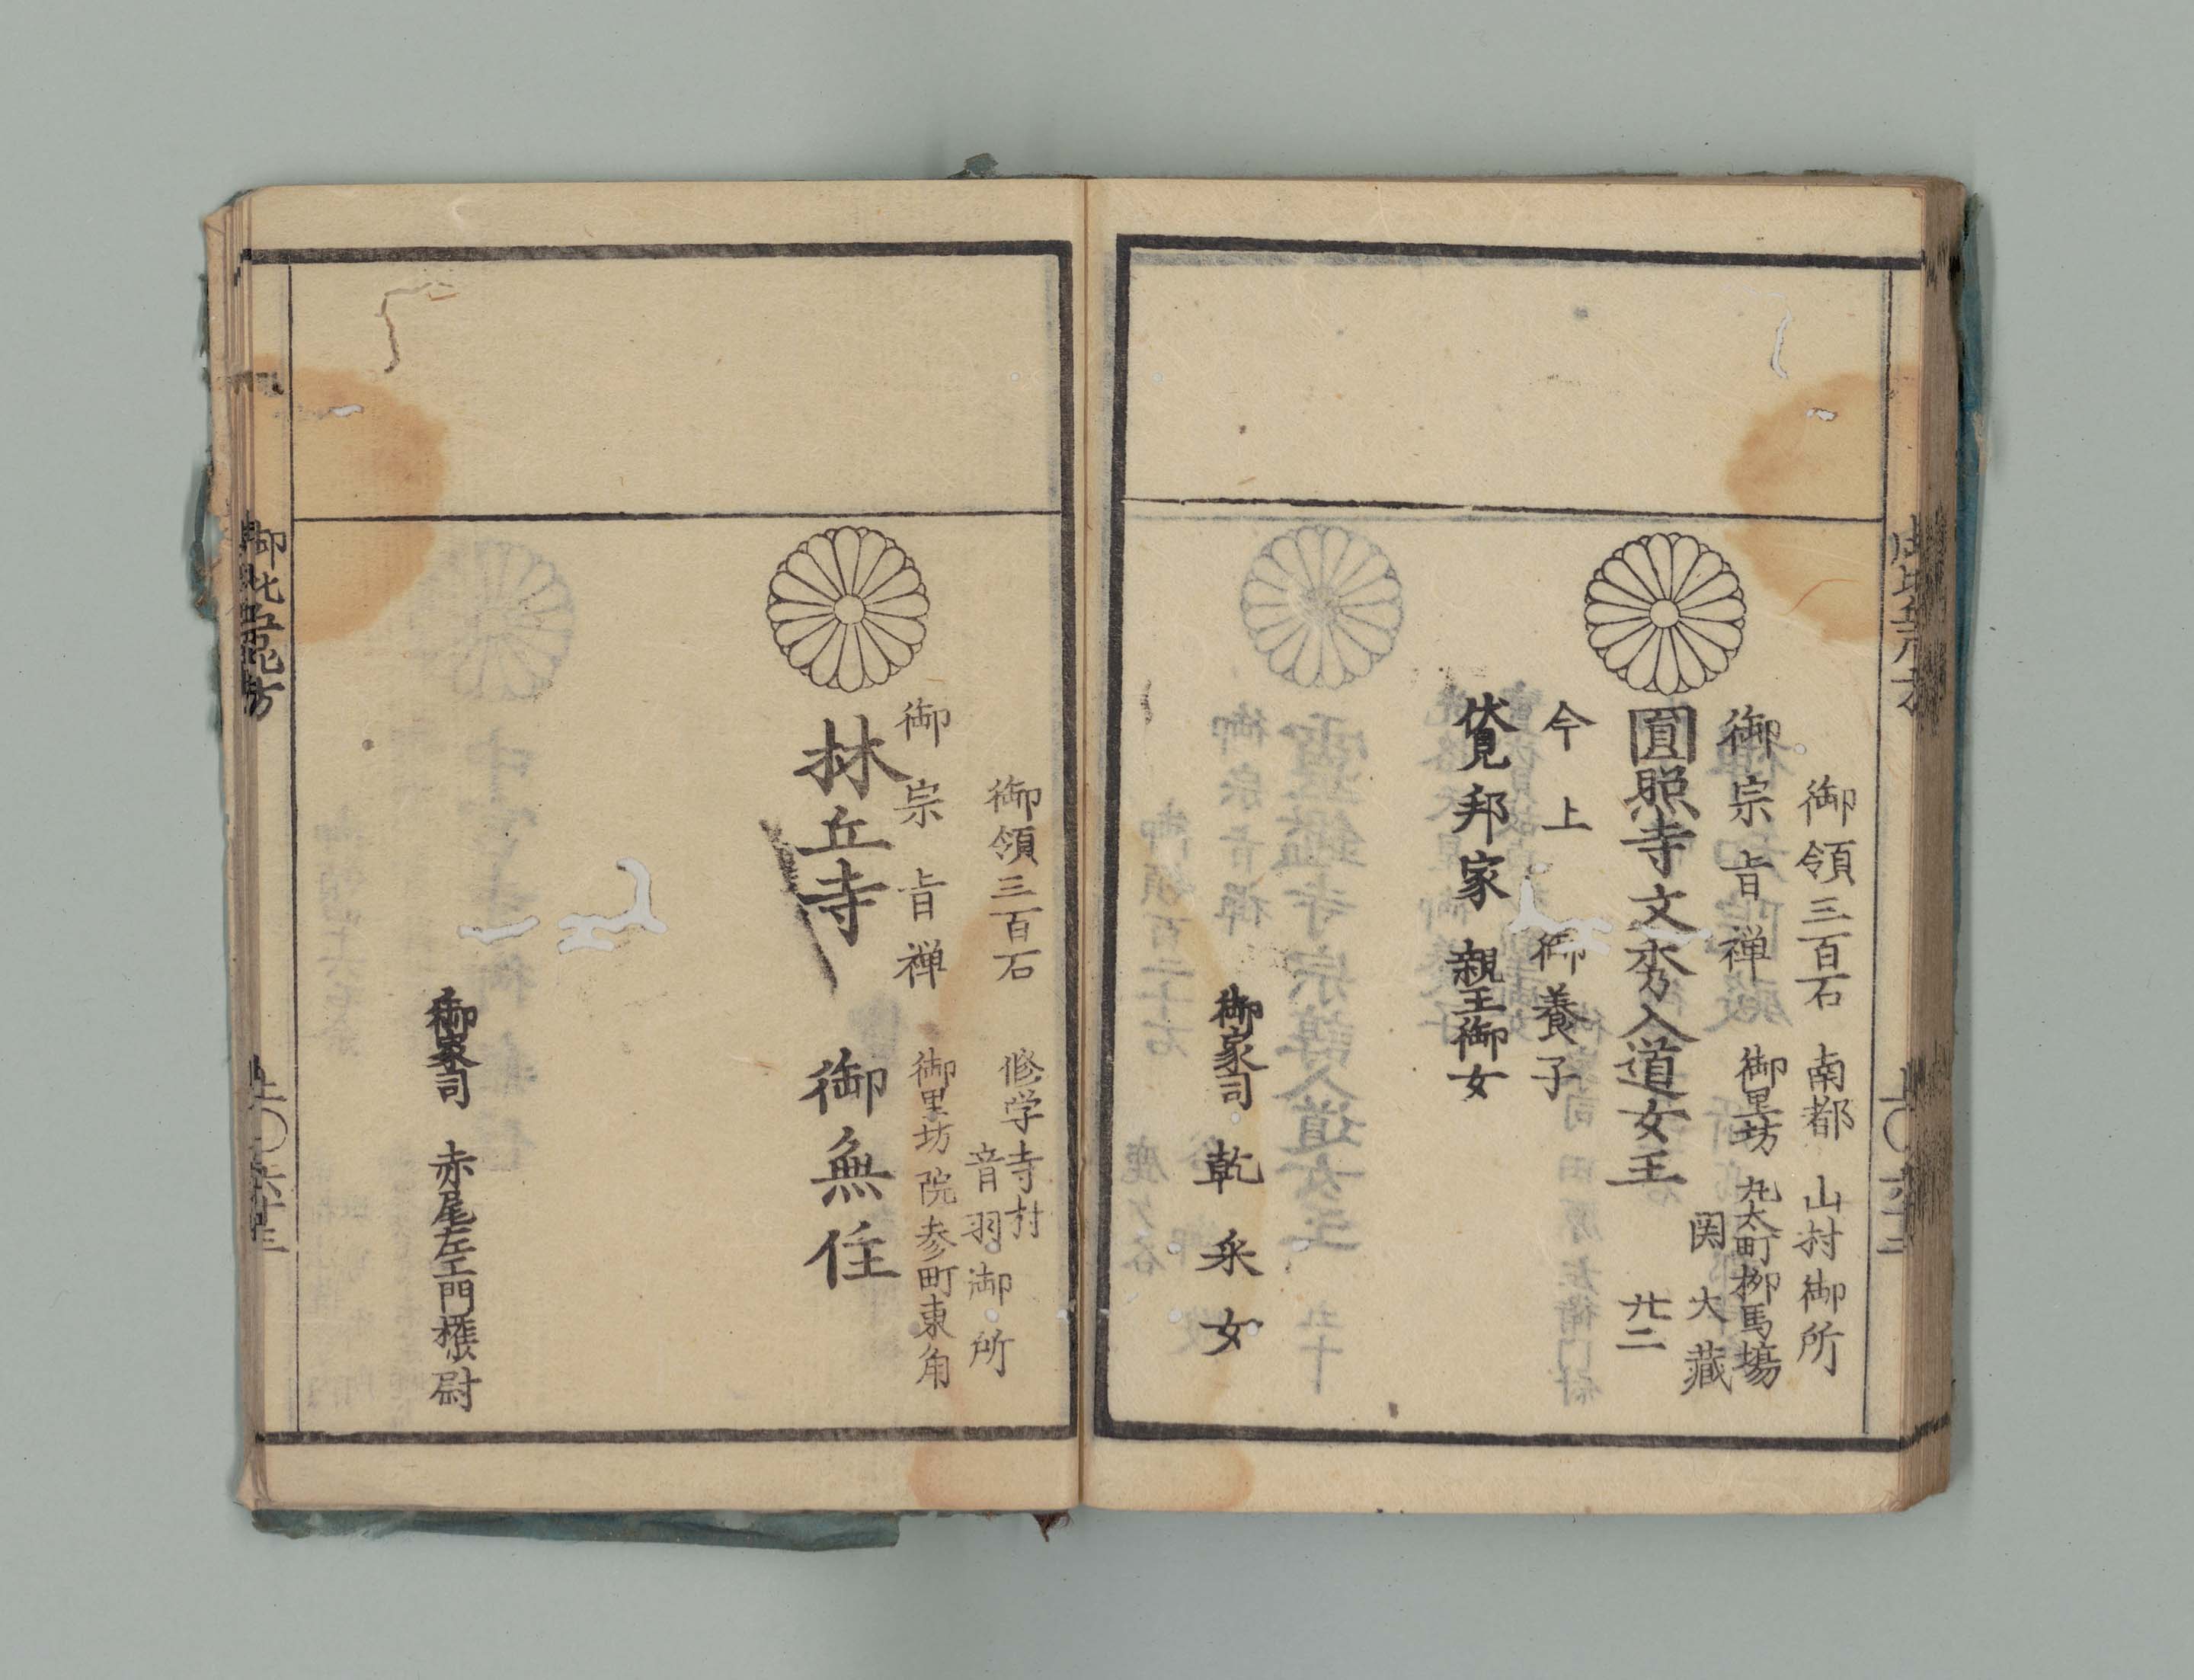 御領三百石 南都 山村御所
御宗旨禅 御里坊 丸太町柳馬場
関大蔵
圓照寺文秀入道女王 廿二
今上 御養子
伏見邦家 親王御女
御家司 乾 采女
御領三百石 修学寺村
音羽御所
御宗旨禅 御里坊 院参町東角
林丘寺 御無住
御家司 赤尾左エ門権尉